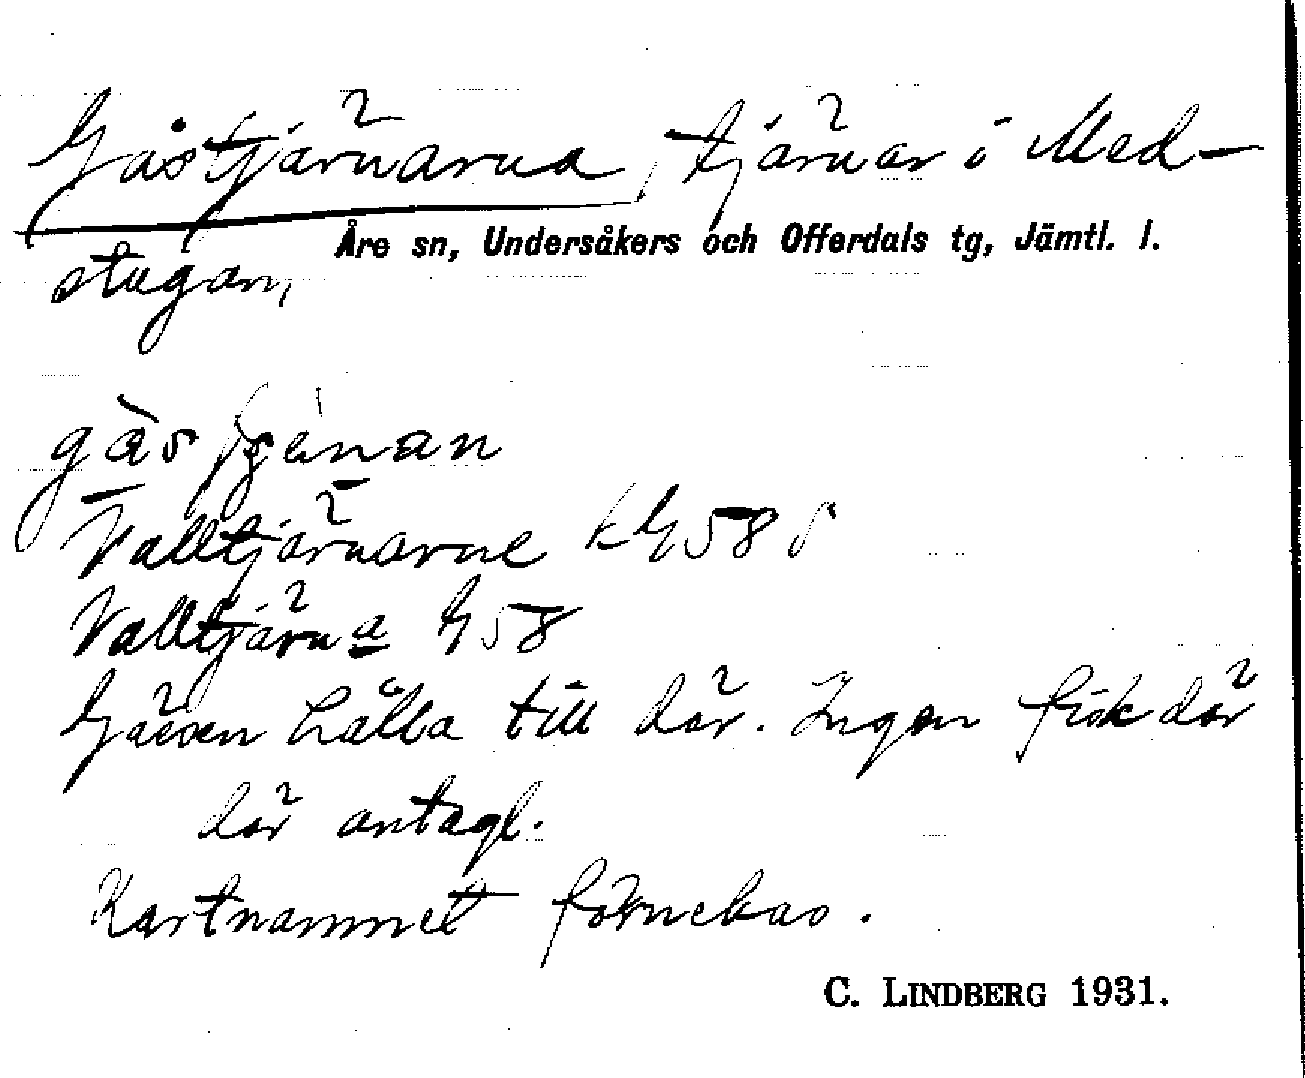 Gåstjärnarna, tjärnar i Med-
Åre sn, Undersåkers och Offerdals tg, Jämtl. l.
stugan,
Valltjärnarne kG 58 S
Valltjärna G 58
Gässen hålla till där. Ingen fisk där
där antagl.
Kartnamnet förnekas.
C. LINDBERG 1931.